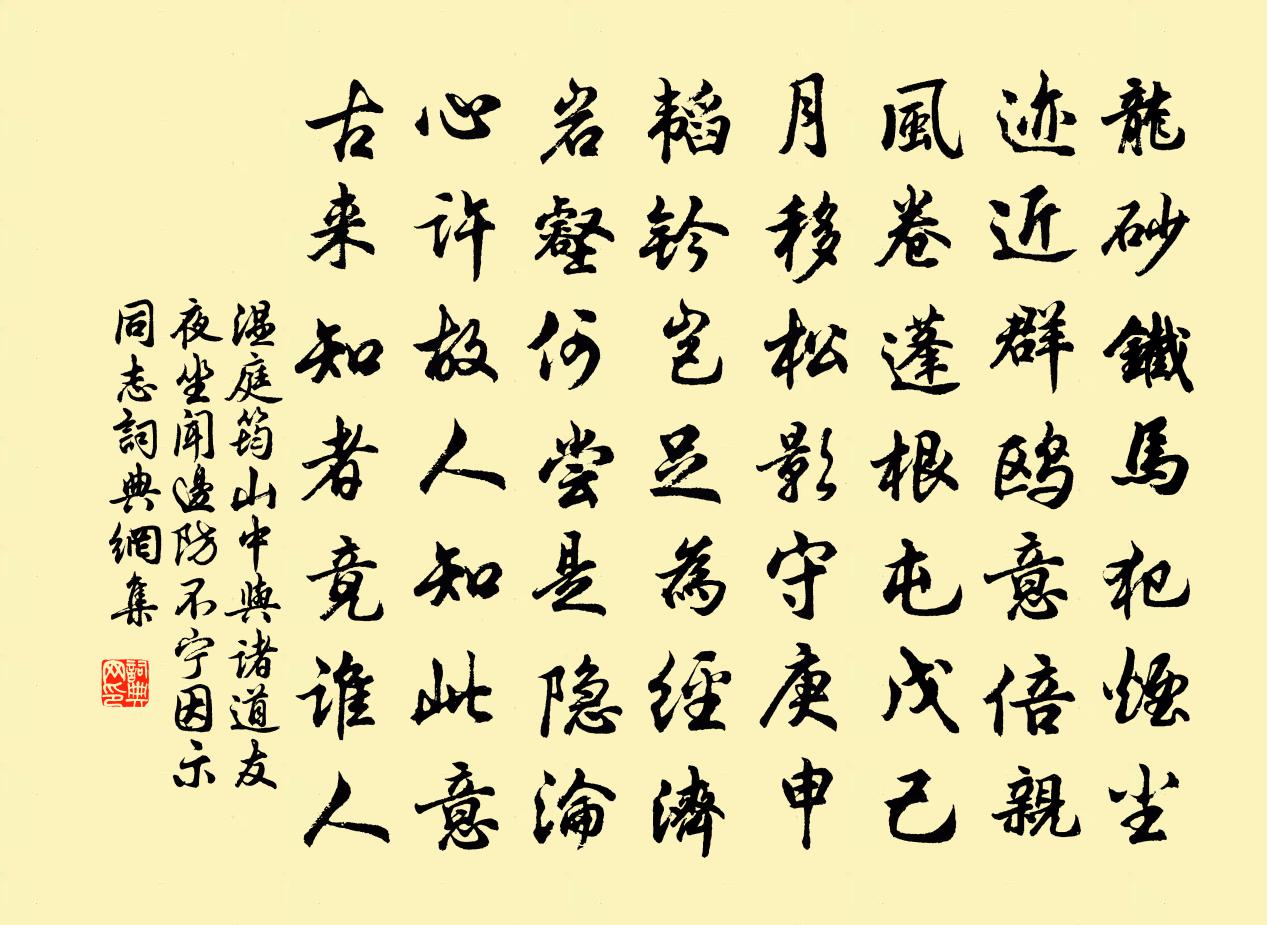 龍砂鐵馬犯煙尘
迹近群鸥意倍親
風卷蓬根屯戊己
月移松影守庚申
韬鈐岂足為經濟
岩壑何尝是隐淪
心许故人知此意
古来知者竟谁人
温庭筠山中與诸道友
夜坐闻邊防不宁因示
同志詞典網集
詞典网印